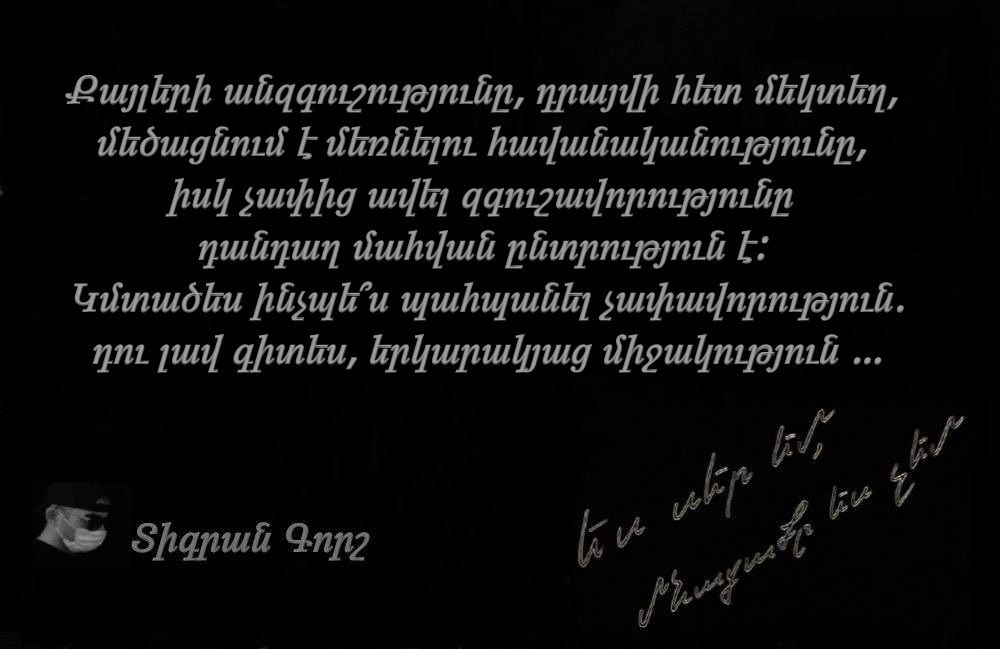 Քայլերի անզգուշությունը, դրայվի հետ մեկտեղ,
մեծացնում է մեռնելու հավանականությունը,
իսկ չափից ավել զգուշավորությունը
դանդաղ մահվան ընտրություն է:
Կմտածես ինչպե՞ս պահպանել չափավորություն.
դու լավ գիտես, երկարակյաց միջակություն ...
Տիգրան Գորշ
Ես սեր եմ,
մնացածը ես չեմ